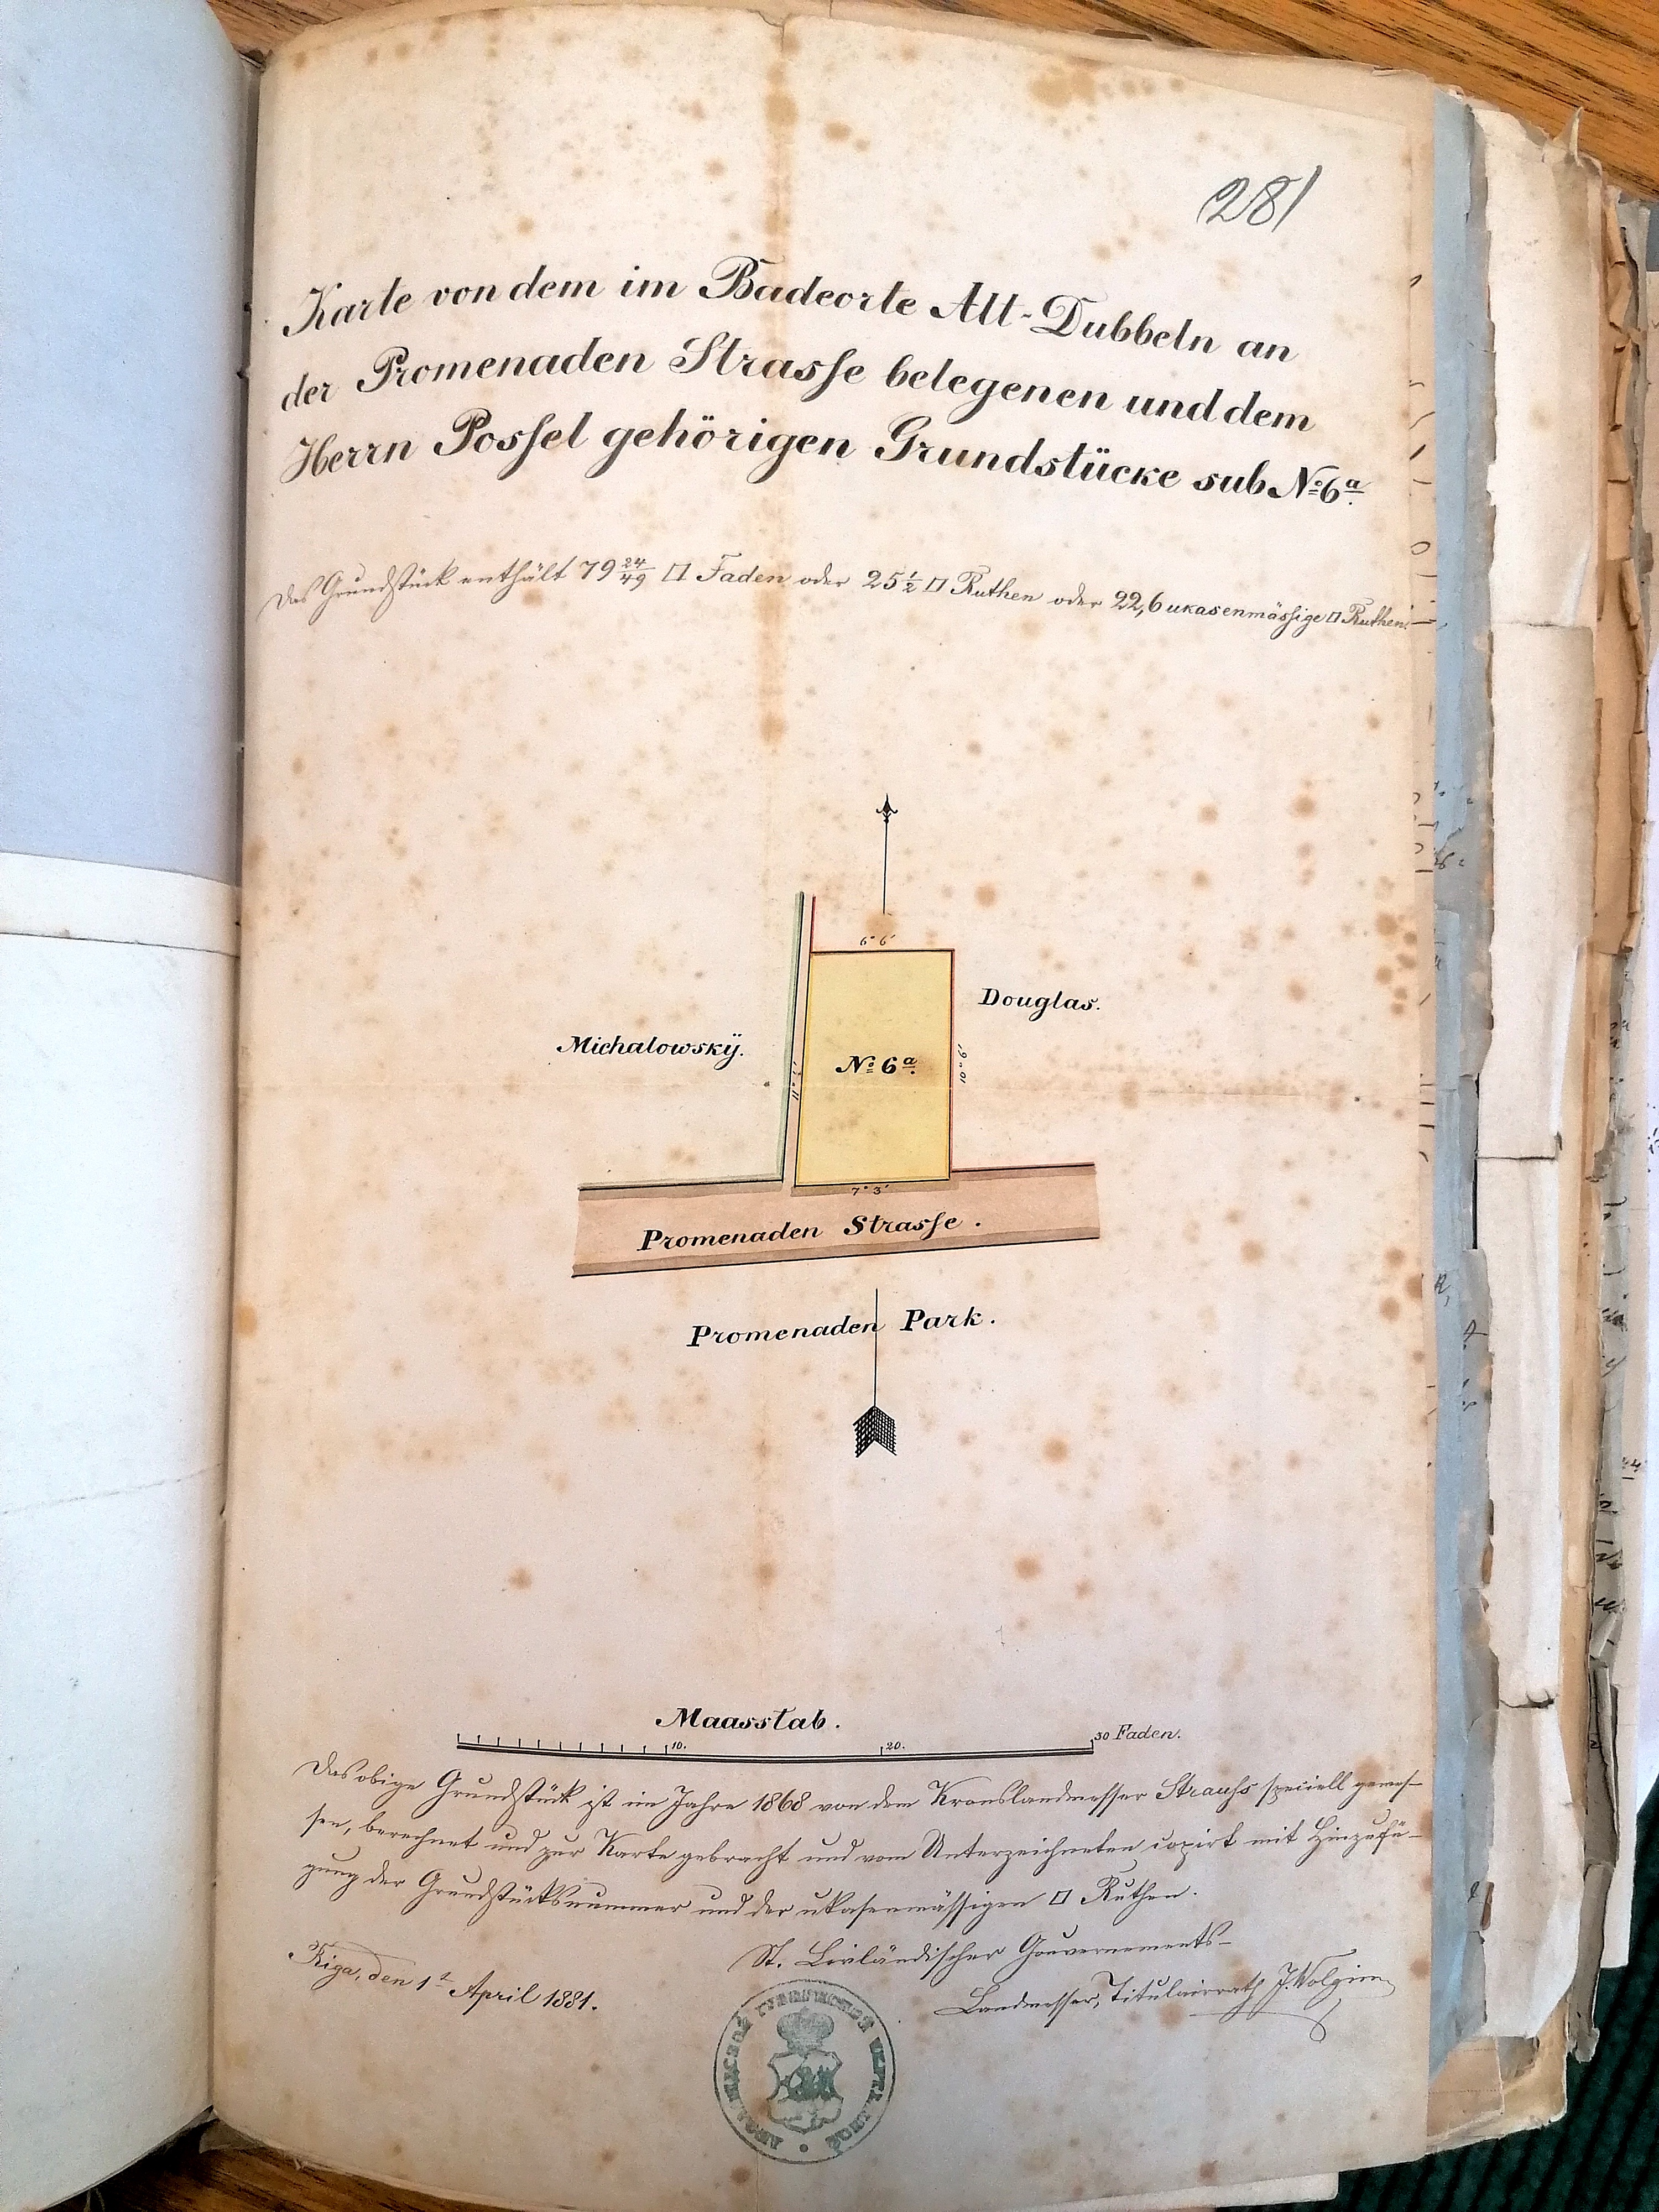 281
Karte von dem im Badeorte Alt-Dubbeln an
der Promenaden Strasse belegenen und dem
Herrn Possel gehörigen Grundstücke sub № 6a.
Das Grundstück enthält 79 24/49 □ Faden oder 25 1/2 □ Ruthen oder 22,6 ukasenmässige □ Ruthen.
6° 6'
Douglas.
Michalowskÿ.
№ 6a.
7° 3'
Promenaden Strasse.
Promenaden Park.
Maasstab.
10. 20. 30 Faden.
Das obige Grundstück ist im Jahre 1868 von dem Kronslandmesser Strauss speciell gemes-
sen, berechnet und zur Karte gebracht und vom Unterzeichneten copirt mit Hinzufü-
gung der Grundstücksnummer und der ukasenmässigen □ Ruthen.
Riga, den 1t April 1881.
St. Livländischer Gouvernements-
Landmesser, Titulairrath J. Wolgin